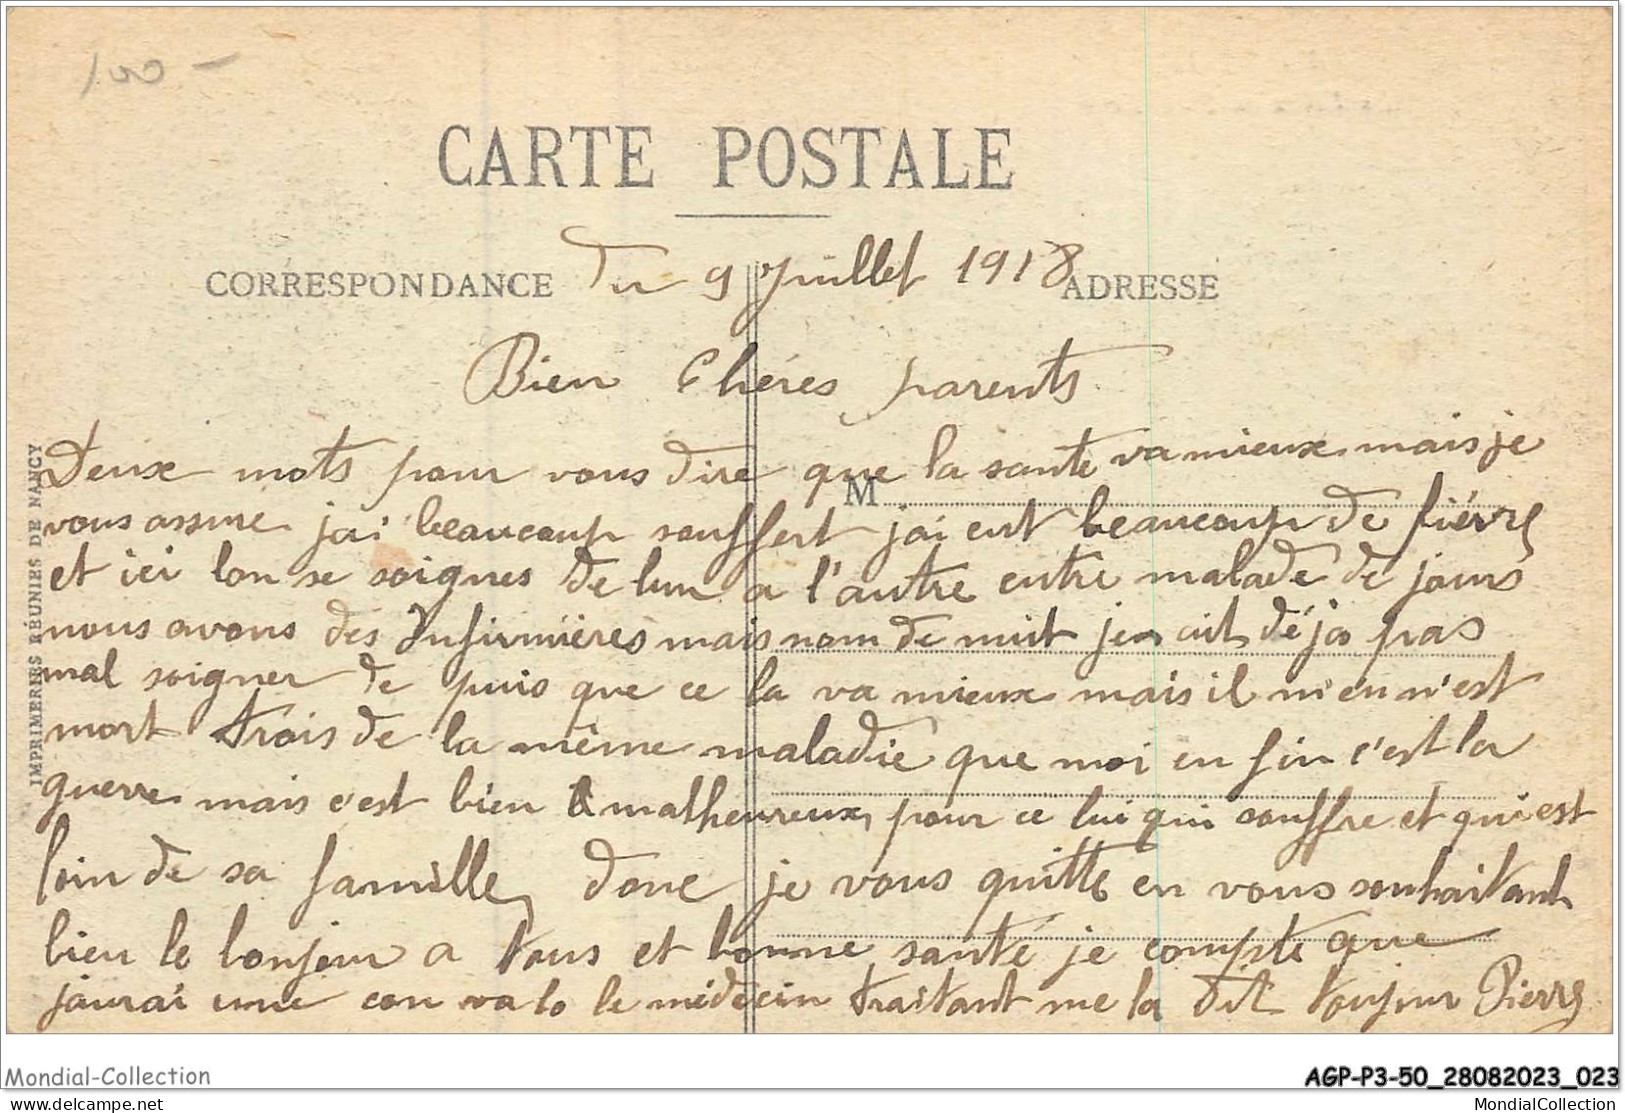 100 -
CARTE POSTALE
CORRESPONDANCE
Du 9 Juillet 1918
ADRESSE
Bien Chéres parents
Deux mots pour vous dire que la santé va mieux mais je
M
vous assure jai beaucoup souffert jai eut beaucoup de fiévre
et ici lon se soignes de lun a l'autre entre malade de jours
nous avons des Infirmières mais nom de nuit jen ait déja pas
mal soigner de puis que ce la va mieux mais il m'en n'est
mort trois de la même maladie que moi en fin c'est la
guerre mais c'est bien malheureux pour ce lui qui souffre et qui est
loin de sa famille, donc je vous quitte en vous souhaitant
bien le bonjour a tous et bonne santé je compte que
jaurai une con va lo le médecin traitant me la dit toujour Pierre
IMPRIMERIES RÉUNIES DE NANCY
Mondial-Collection
AGP-P3-50_28082023_023
delcampe.net
MondialCollection